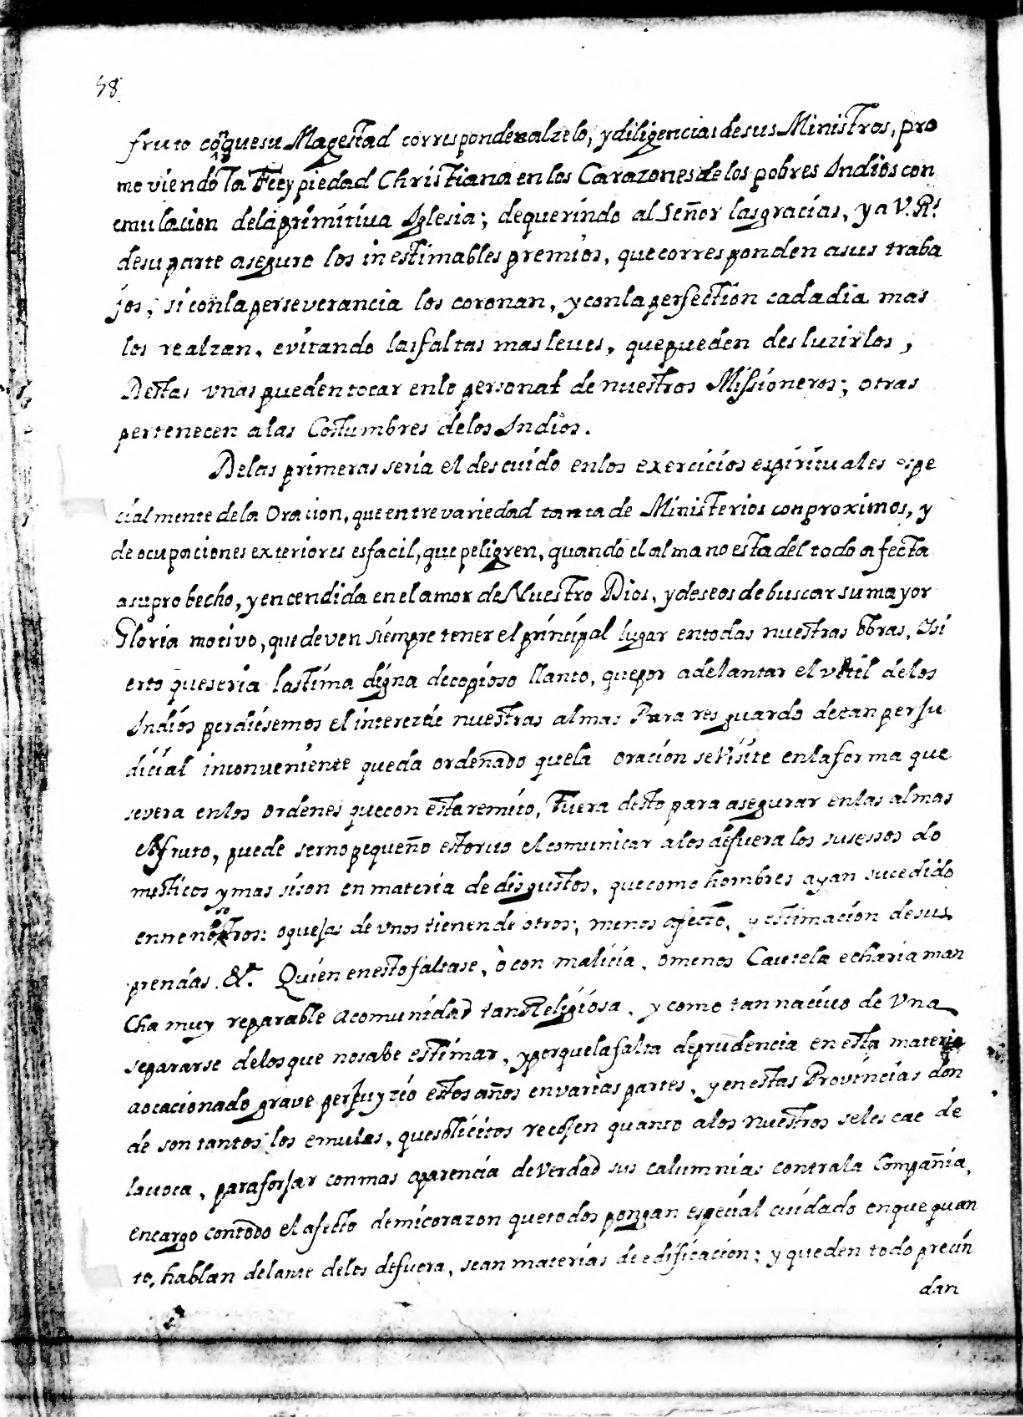 58
fruto cõ que su Magestad corresponde al zelo, y diligencias de sus Ministros, pro
moviendo la Fee y piedad Christiana en los Carazones de los pobres Indios con
emulacion de la primitiua Iglesia; de que rindo al Señor las gracias, y a V. R.s
de su parte aseguro los inestimables premios, que corresponden a sus traba
jos, si con la perseverancia los coronan, y con la perfection cada dia mas
los realzan, evitando las faltas mas leues, que pueden desluzirlos,
Destas unas pueden tocar en lo personal de nuestros Missioneros; otras
pertenecen a las Costumbres de los Indios.
De las primeras seria el descuido en los exercicios espirituales espe
cialmente de la Oracion, que entre variedad tanta de Ministerios con proximos, y
de ocupaciones exteriores es facil, que peligren, quando el alma no esta del todo afecta
a su probecho, y encendida en el amor de Nuestro Dios, y deseos de buscar su mayor
Gloria motivo, que deven siempre tener el principal lugar en todas nuestras obras, Isi
erto que seria lastima digna de copioso llanto, que por adelantar el util de los
Indios perdiésemos el interez de nuestras almas: Para resguardo de tan perju
dicial inconveniente queda ordenado que la oracion se visite en la forma que
se vera en los ordenes que con esta remito, Fuera desto para asegurar en las almas
el fruto, puede ser no pequeño estoruo el comunicar a los de fuera los susessos do
mesticos y mas si son en materia de disgustos, que como hombres ayan sucedido
entre nosotros: o quejas de unos tienen de otros; menos afecto, y estimacion de sus
prendas. &.a Quien en esto faltase, ò con malicia, o menos Cautela echaria man
cha muy reparable a comunidad tan Religiosa, y como tan nacivo de una
separarse de los que no sabe estimar, y porque la falta de prudencia en esta materia
a ocacionado grave perjuyzio estos años en varias partes, y en estas Provincias don
de son tantos los emulos, que solicitos recojen quanto a los nuestros se les cae de
la voca, para forjar con mas aparencia de verdad sus calumnias contra la Compañia,
encargo con todo el afecto de mi corazon que todos pongan especial cuidado en que quan
to, hablan delante de los de fuera, sean materias de edificacion; y queden todo precin
dan